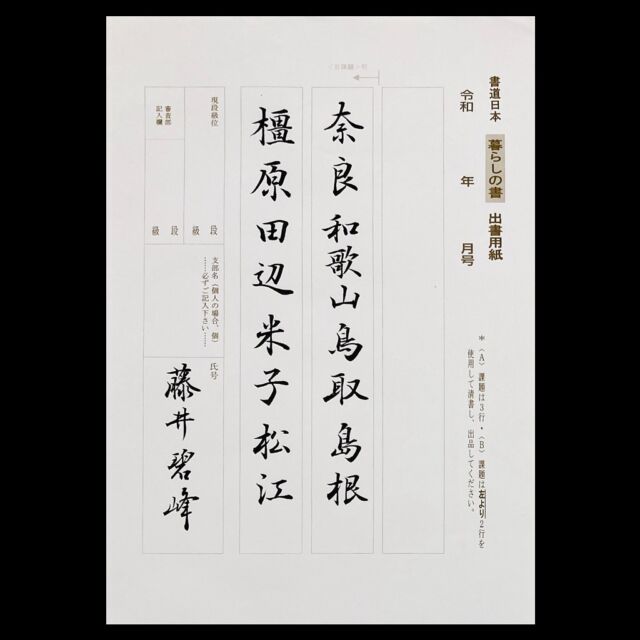 書道日本 暮らしの書 出書用紙
令和 年 月号
*〈A〉課題は3行・〈B〉課題は左より2行を
使用して清書し、出品してください。
奈良和歌山鳥取島根
橿原田辺米子松江
現段級位
段
級
審査部
記入欄
段
級
支部名(個人の場合、個)
……必ずご記入下さい……
氏号
藤井碧峰